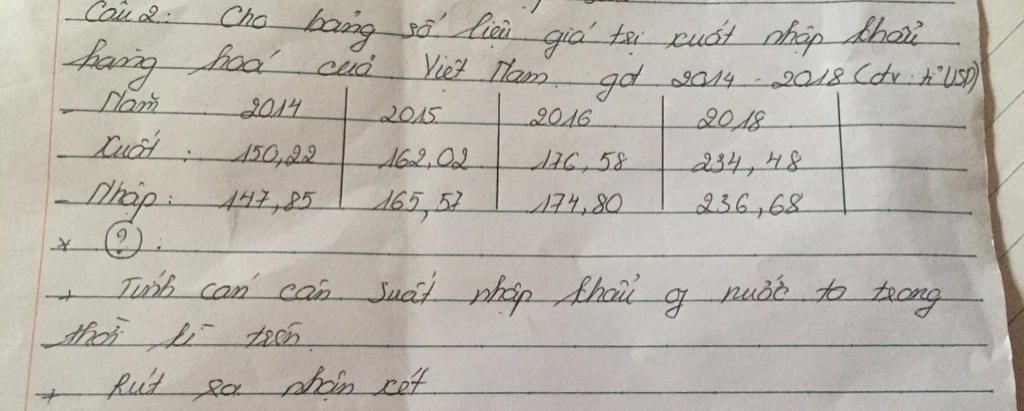 Câu 2: Cho bảng số liệu giá trị xuất nhập khẩu
hàng hoá của Việt Nam gđ 2014 - 2018 (đv: tỉ USD)
- Năm 2014 2015 2016 2018
- Xuất: 150,22 162,02 176,58 234,48
- Nhập: 147,85 165,57 174,80 236,68
* ?:
+ Tính cán cân suất nhập khẩu nước ta trong
thời kì trên
+ Rút ra nhận xét